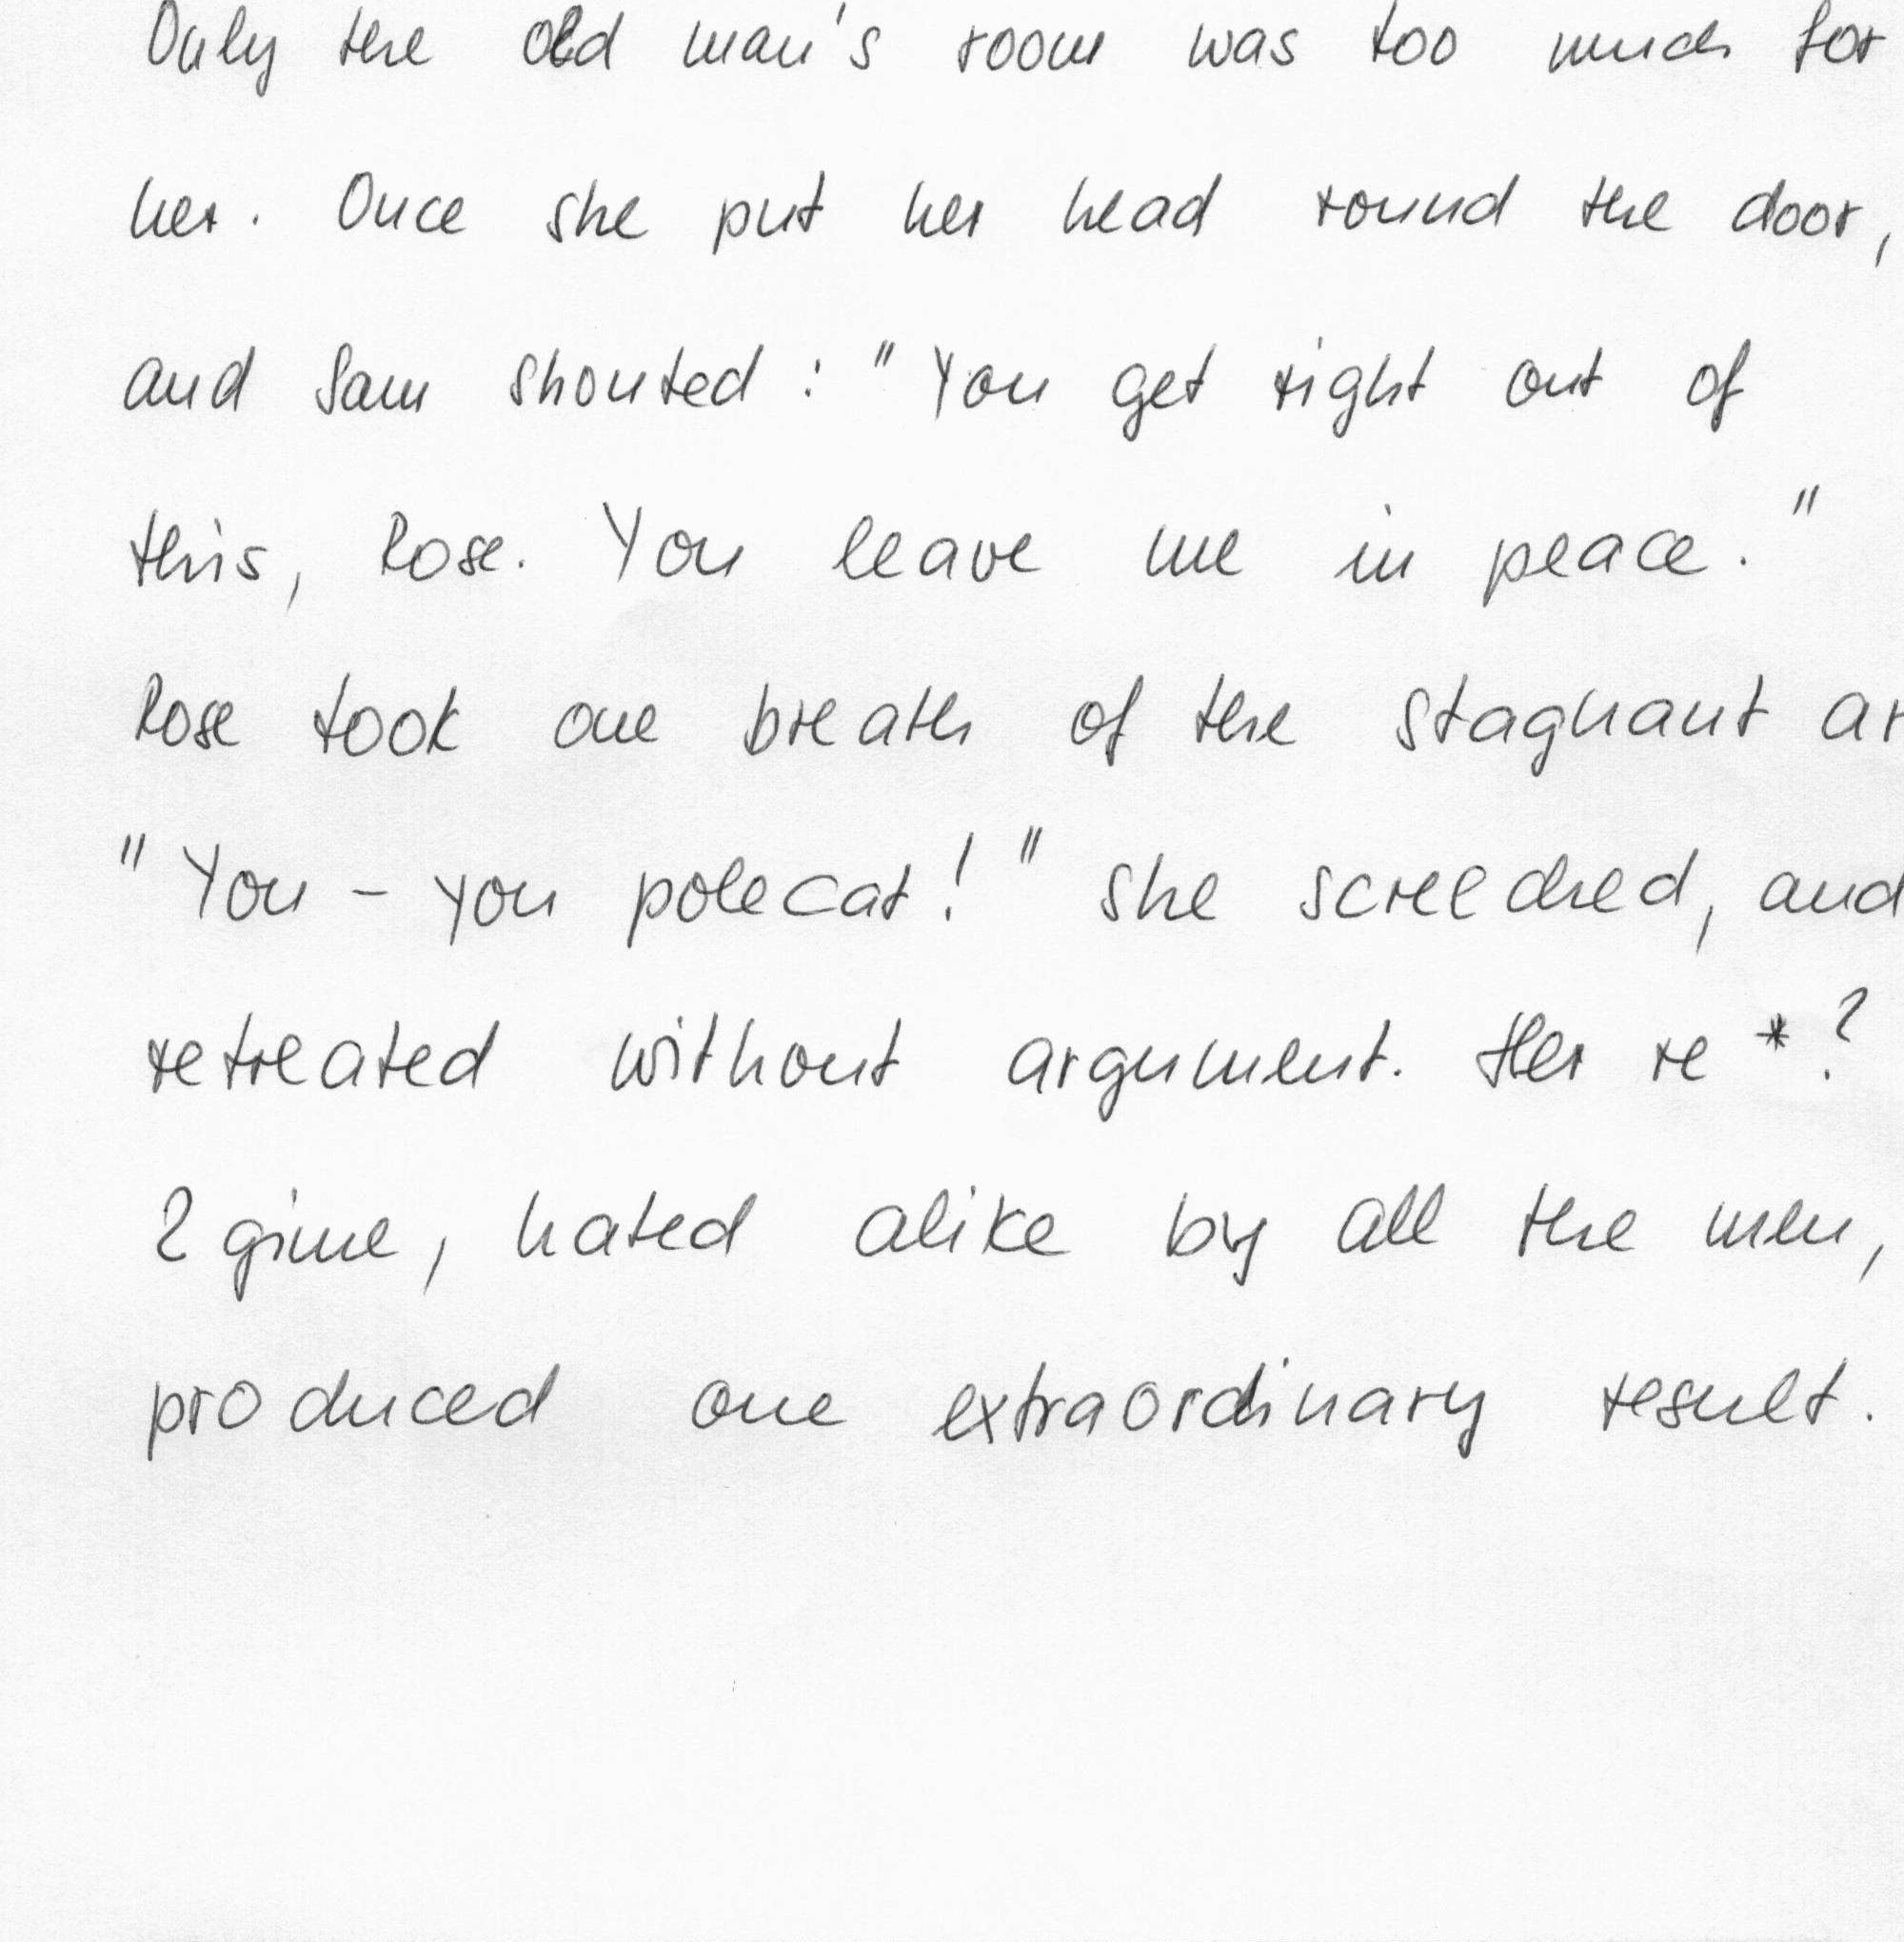 Only the old man's room was too much for
her. Once she put her head round the door,
and Sam shouted : "You get right out of
this, Rose. You leave me in peace."
Rose took one breath of the stagnant
"You - you polecat!" she screeched, and
retreated without argument. Her re*?
2gime, hated alike by all the men,
produced one extraordinary result.